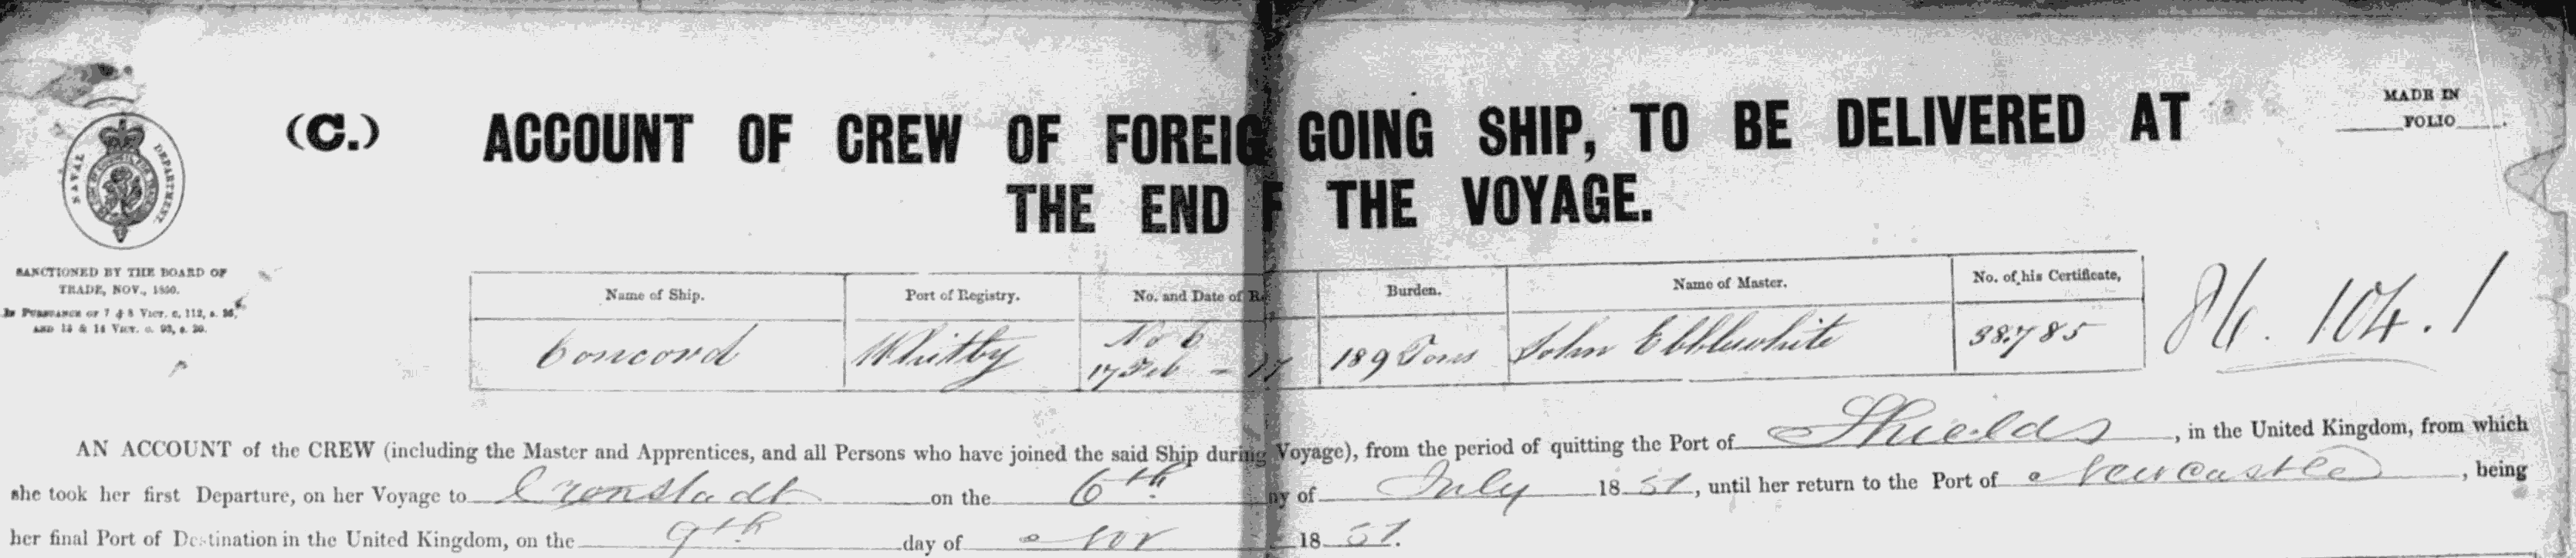 MADE IN
(C.) ACCOUNT OF CREW OF FOREIG GOING SHIP, TO BE DELIVERED AT
FOLIO
THE END F THE VOYAGE.
NAVAL DEPARTMENT.
SANCTIONED BY THE BOARD OF
TRADE, NOV., 1850.
IN PURSUANCE OF 7 & 8 VICT. C. 112, S. 26,
AND 13 & 14 VICT. C. 93, S. 20.
Name of Ship. Port of Registry. No. and Date of Re Burden. Name of Master. No. of his Certificate,
Concord Whitby No 6 189 Tons John Ebblewhite 38.785
17 Feb 104.1
AN ACCOUNT of the CREW (including the Master and Apprentices, and all Persons who have joined the said Ship during Voyage), from the period of quitting the Port of Shields, in the United Kingdom, from which
she took her first Departure, on her Voyage to Cronstadt on the 6th ay of July 1851, until her return to the Port of Newcastle, being
her final Port of Destination in the United Kingdom, on the 9th day of Nov 1851.